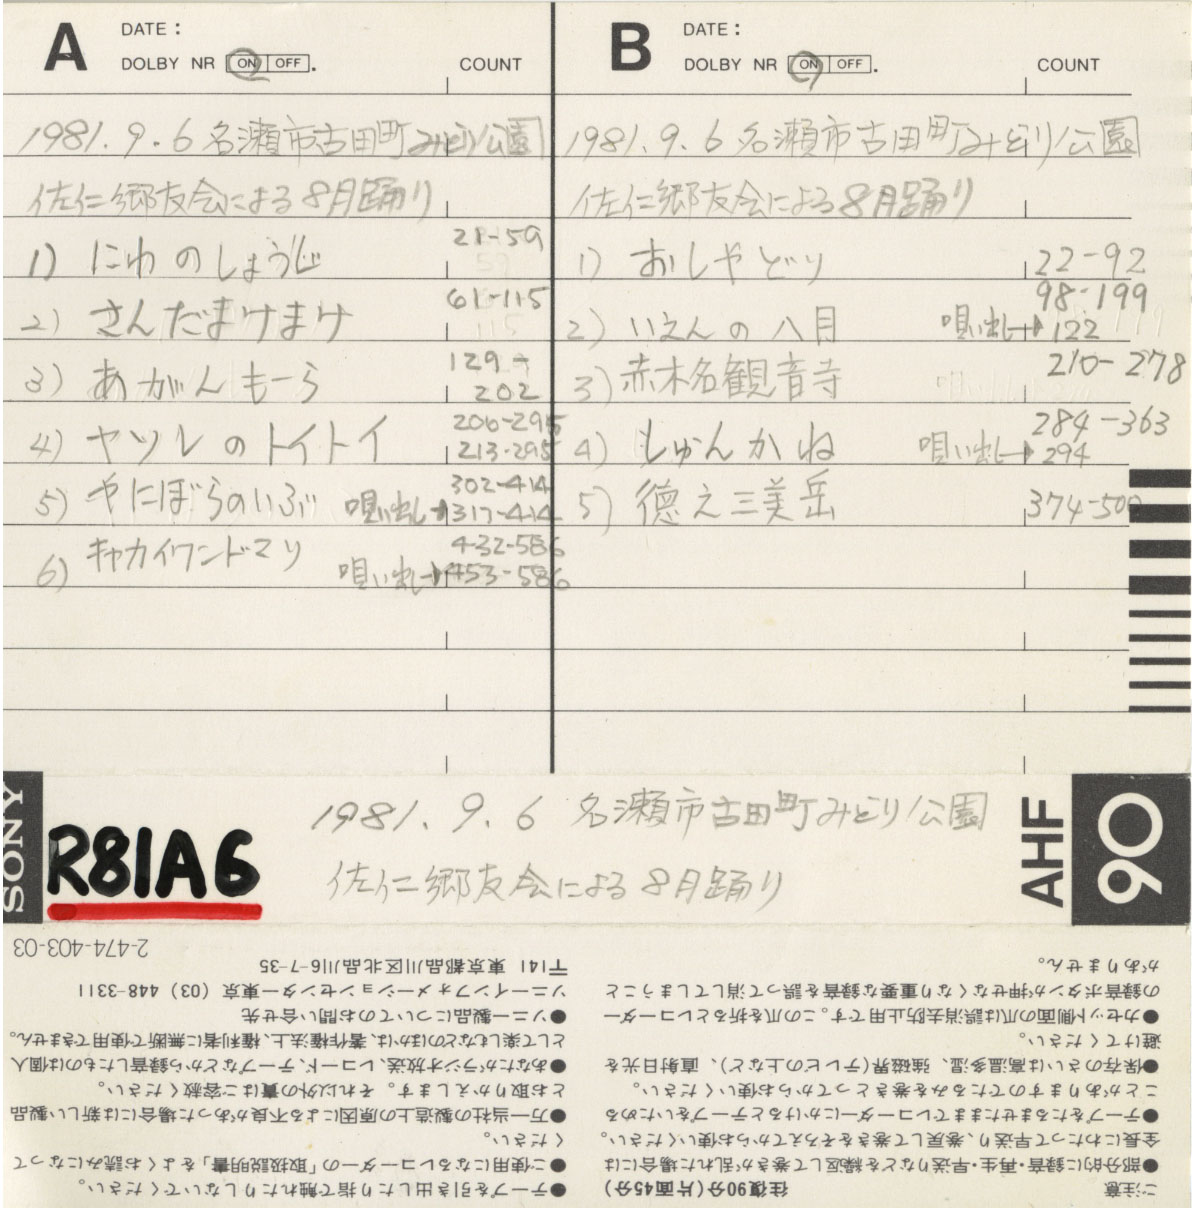 A
DATE :
DOLBY NR ON OFF .
COUNT
1981.9.6 名瀬市古田町みどり公園
佐仁郷友会による8月踊り
1) にわのしょうじ 21-59
2) さんだまけまけ 61-115
3) あがんもーら 129-
202
4) ヤソレのトイトイ 206-295
213-295
5) やにぼらのいぶ 302-414
唄い出し→317-414
6) キャカイワンドマリ 432-586
唄い出し→453-586
B
DATE :
DOLBY NR ON OFF .
COUNT
1981.9.6 名瀬市古田町みどり公園
佐仁郷友会による8月踊り
1) おしやどり 22-92
98-199
2) いえんの八月 唄い出し→122
3) 赤木名観音寺 210-278
284-363
4) しゅんかね 唄い出し→294
5) 徳之三美岳 374-500
SONY
R81A6
1981.9.6 名瀬市古田町みどり公園
佐仁郷友会による8月踊り
AHF
90
ご注意 往復90分(片面45分)
●部分的に録音・再生・早送りなどを繰返して巻きが乱れた場合には
全長にわたって早送り、巻戻して巻きをそろえてからお使いください。
●テープをたるませたままでレコーダーにかけるとテープをいためる
ことがありますのでたるみを巻きとってからお使いください。
●保存のさいは高温多湿、強磁界(テレビの上など)、直射日光を
避けてください。
●カセット側面の爪は誤消去防止用です。この爪を折るとレコーダー
の録音ボタンが押せなくなり重要な録音を誤って消してしまうこと
がありません。
●テープを引き出したり指で触れたりしないでください。
●ご使用になるレコーダーの「取扱説明書」をよくお読みになって
ください。
●万一当社の製造上の原因による不良があった場合には新しい製品
とお取りかえします。それ以外の責はご容赦ください。
●あなたがラジオ放送、レコード、テープなどから録音したものは個人
として楽しむなどのほかは、著作権法上、権利者に無断で使用できません。
●ソニー製品についてのお問い合せ先
ソニーインフォメーションセンター東京 (03) 448-3311
〒141 東京都品川区北品川6-7-35
2-474-403-03